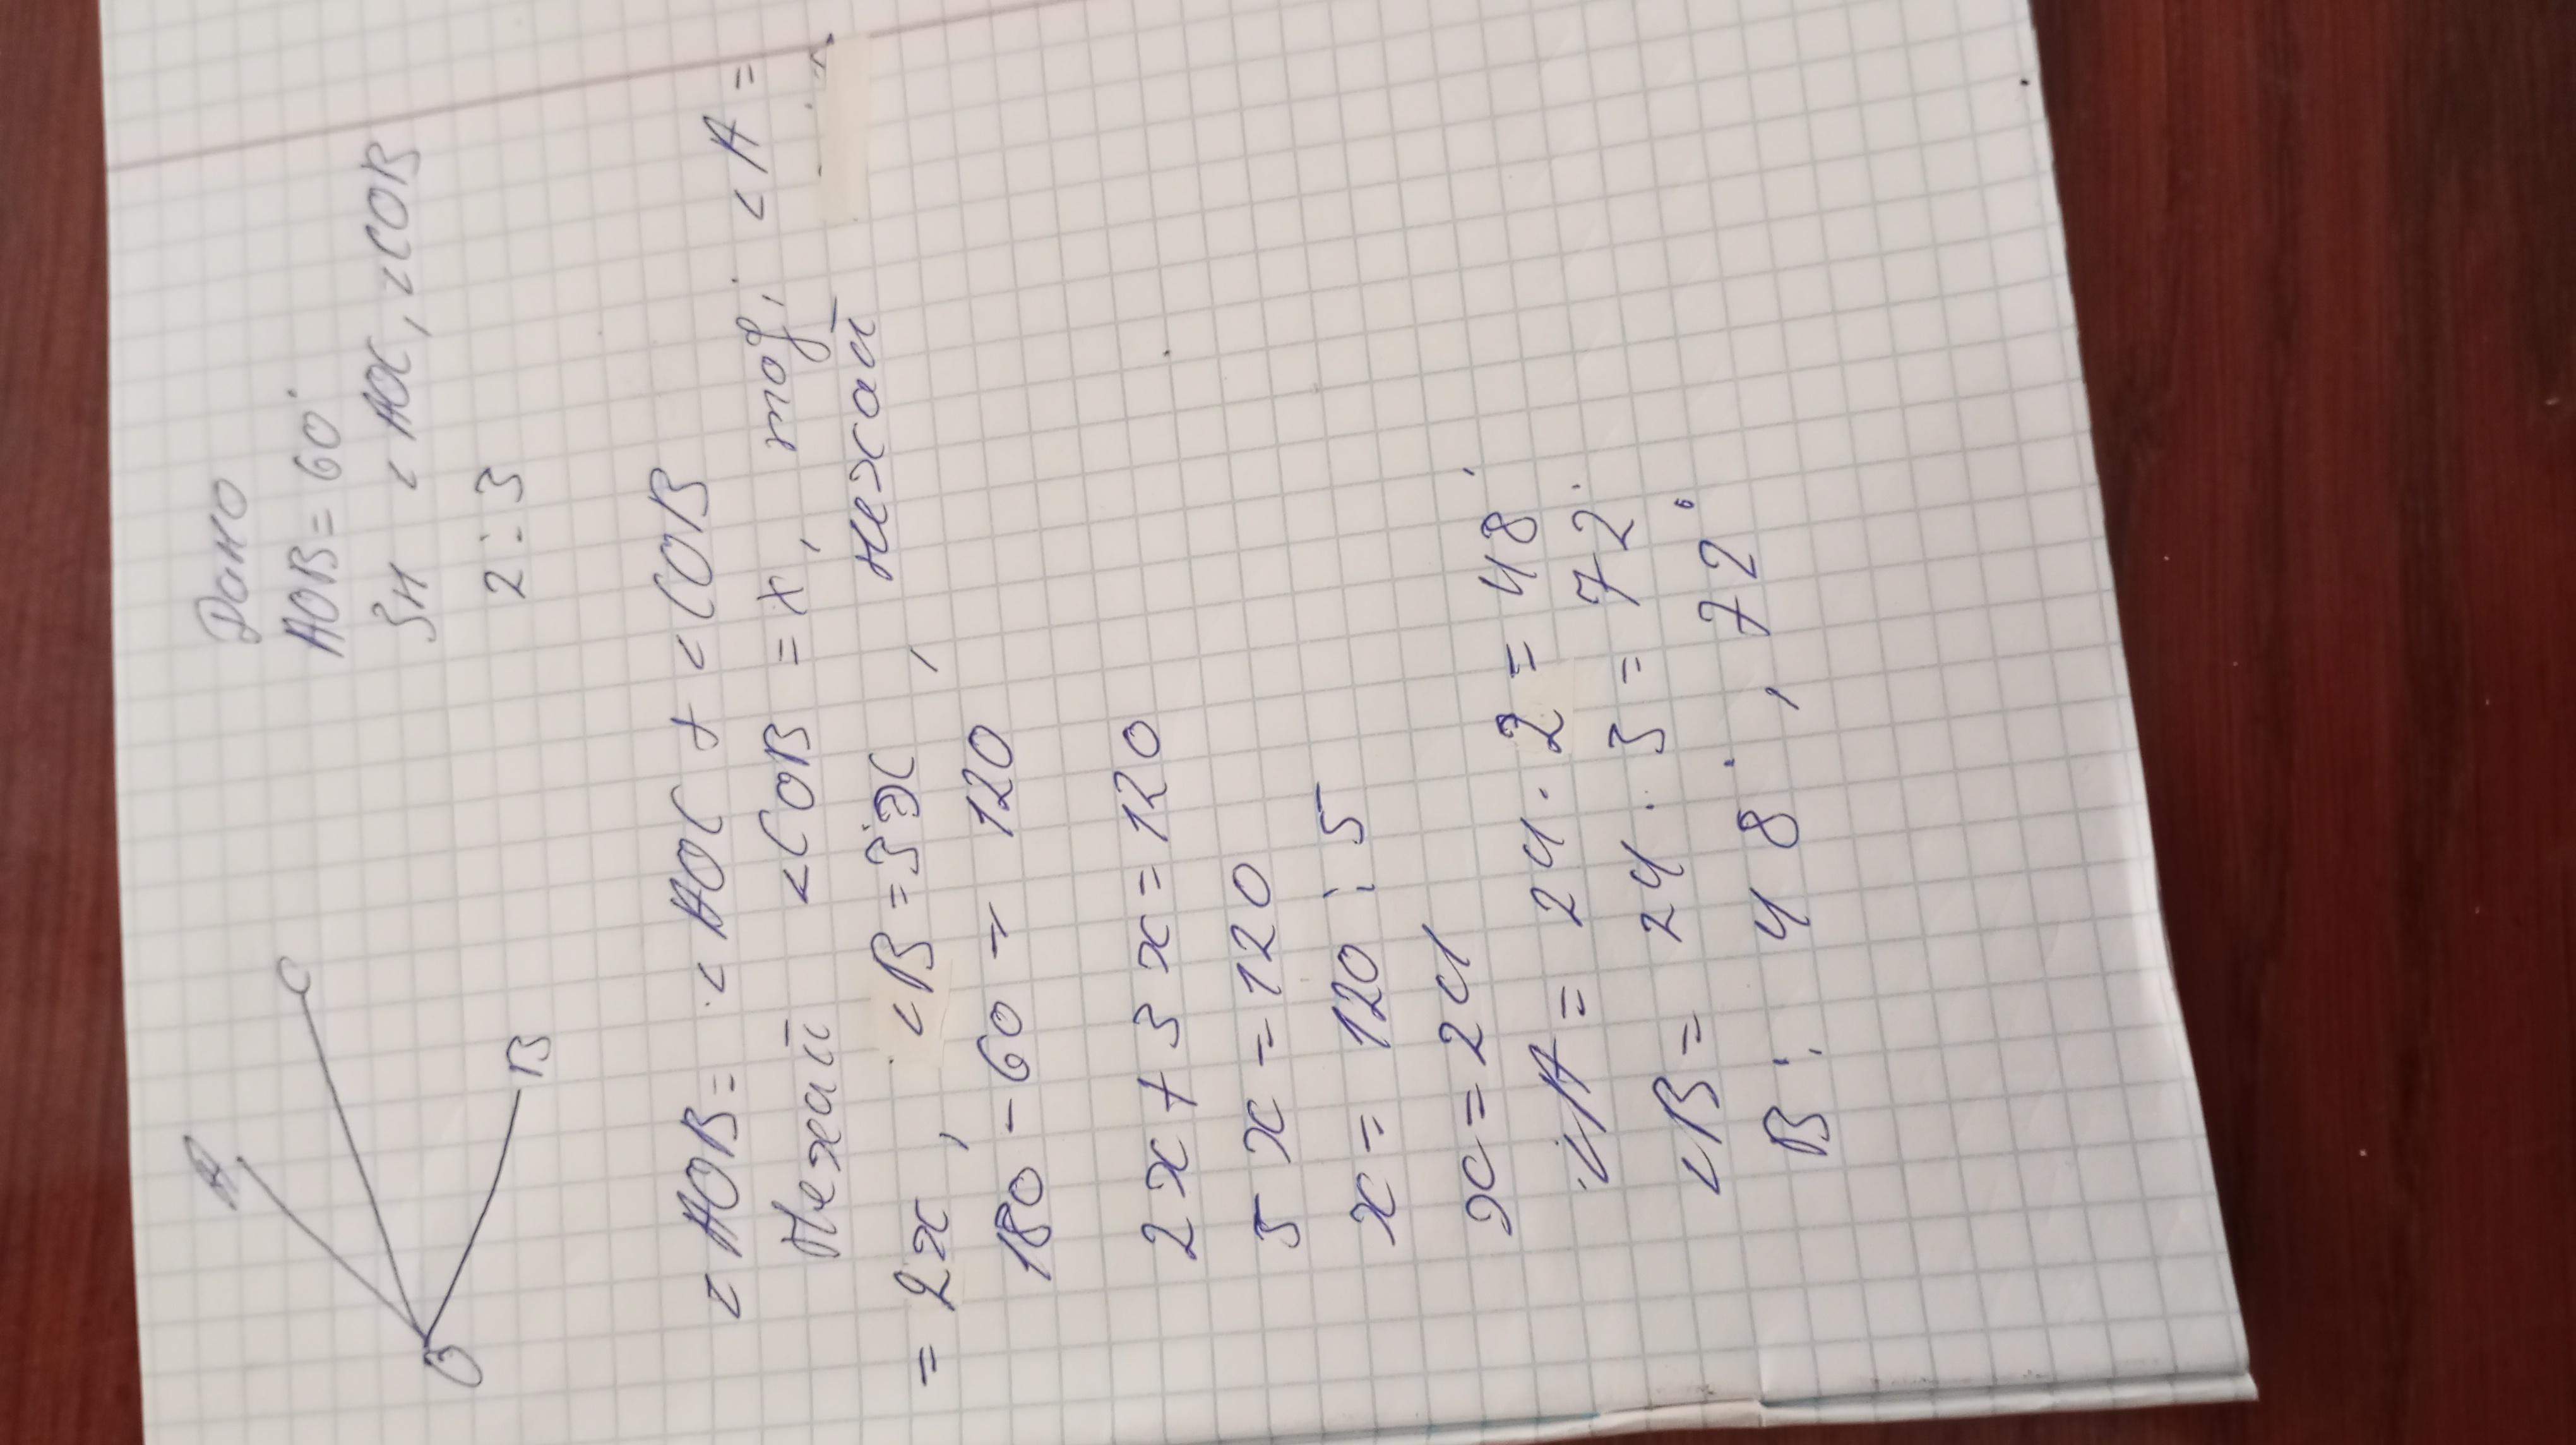 A
C
B
O
Дано
AOB = 60°
Зн < AOC, < COB
2 : 3
< AOB = < AOC + < COB
Нехай < COB = x, тоді < A =
= 2x, < B = 3x, нехай
180 - 60 = 120
2x + 3x = 120
5x = 120
x = 120 : 5
x = 24
< A = 24 · 2 = 48°
< B = 24 · 3 = 72°
В: 48°, 72°